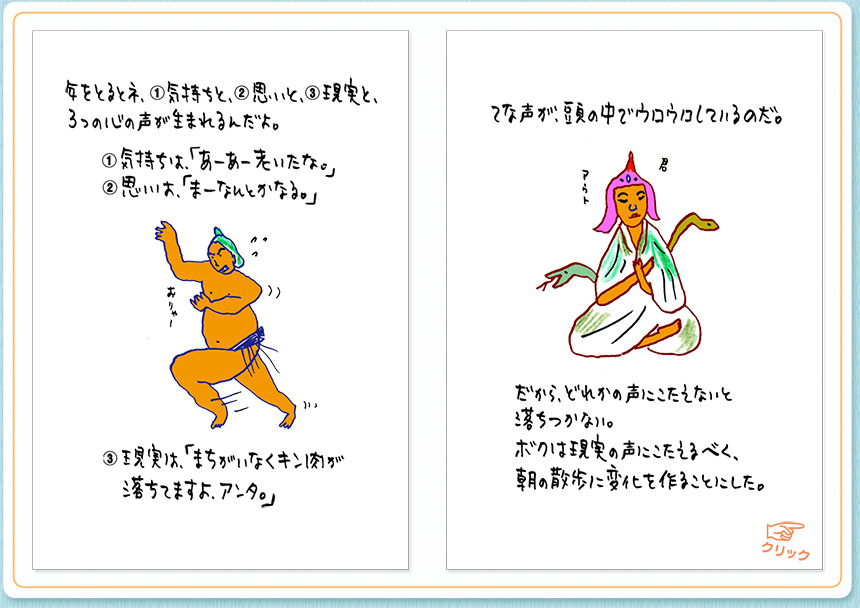 年をとるとネ、①気持ちと、②思いと、③現実と、
3つの心の声が生まれるんだよ。
①気持ちは、「あーあー老いたな。」
②思いは、「まーなんとかなる。」
おりゃー
③現実は、「まちがいなくキン肉が
落ちてますよ、アンタ。」
てな声が、頭の中でウロウロしているのだ。
君
アウト
だから、どれかの声にこたえないと
落ちつかない。
ボクは現実の声にこたえるべく、
朝の散歩に変化を作ることにした。
クリック